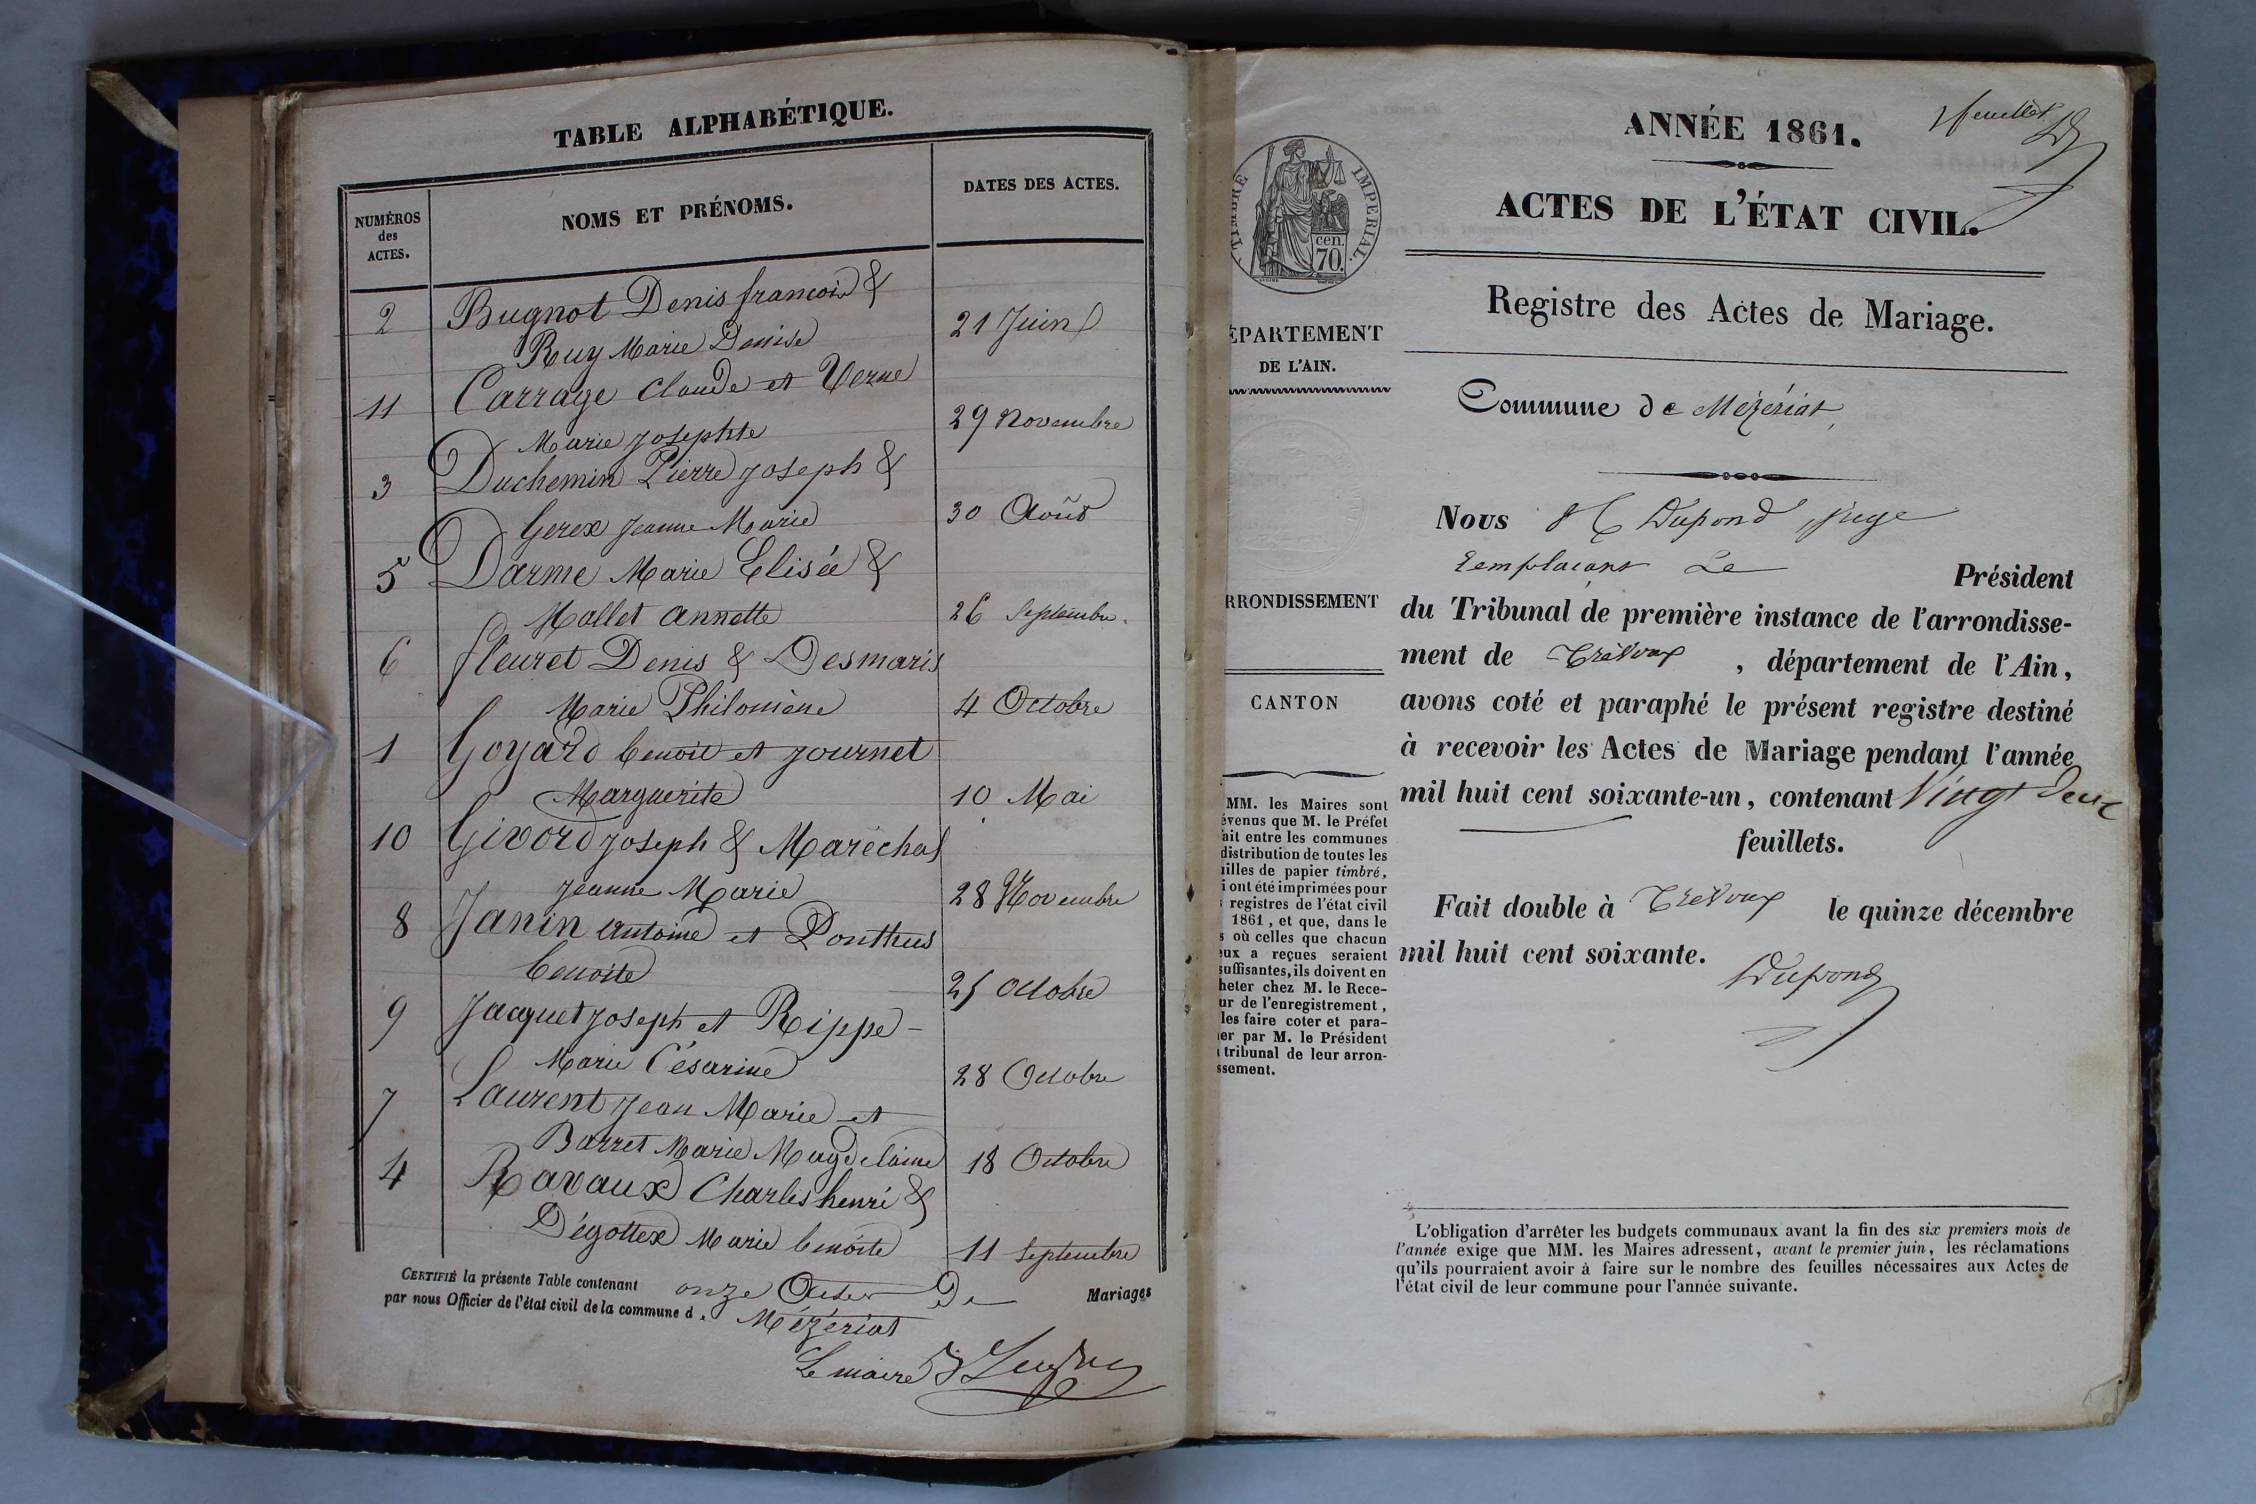 TABLE ALPHABÉTIQUE.
NUMÉROS
des
ACTES.
NOMS ET PRÉNOMS.
DATES DES ACTES.
2 Bugnot Denis françois &
Ruy Marie Denise 21 Juin
11 Carrage Claude et Verne
Marie Josephte 29 Novembre
3 Duchemin Pierre Joseph &
Gerex Jeanne Marie 30 Août
5 Darme Marie Elisée &
Mollet Annette 26 Septembre.
6 fleuret Denis & Desmaris
Marie Philomène 4 Octobre
1 Goyard benoit et Journet
Marguerite 10 Mai
10 Givord Joseph & Maréchal
Jeanne Marie 28 Novembre
8 Janin Antoine et Ponthus
benoite 25 Octobre
9 Jacquet Joseph et Rippe -
Marie Césarine 28 Octobre
7 Laurent Jean Marie et
Barret Marie Magdelaine 18 Octobre
4 Ravaux Charles henri &
Dégottex Marie benoite 11 Septembre
CERTIFIÉ la présente Table contenant onze Actes De Mariages
par nous Officier de l'état civil de la commune d. Mézériat
Le maire
2 feuillets
ANNÉE 1861.
ACTES DE L'ÉTAT CIVIL.
TIMBRE IMPERIAL.
cen.
70.
Registre des Actes de Mariage.
ÉPARTEMENT
DE L'AIN.
Commune de Mézériat,
RRONDISSEMENT
CANTON
Nous Dupond, juge
remplaçant Le Président
du Tribunal de première instance de l'arrondisse-
ment de Trévoux, département de l'Ain,
avons coté et paraphé le présent registre destiné
à recevoir les Actes de Mariage pendant l'année
mil huit cent soixante-un, contenant Vingt Deux
feuillets.
Fait double à Trévoux le quinze décembre
mil huit cent soixante.
Dupond
MM. les Maires sont
évenus que M. le Préfet
ait entre les communes
distribution de toutes les
uilles de papier timbré,
i ont été imprimées pour
registres de l'état civil
1861, et que, dans le
s où celles que chacun
eux a reçues seraient
suffisantes, ils doivent en
heter chez M. le Rece-
ur de l'enregistrement,
les faire coter et para-
er par M. le Président
tribunal de leur arron-
ssement.
L'obligation d'arrêter les budgets communaux avant la fin des six premiers mois de
l'année exige que MM. les Maires adressent, avant le premier juin, les réclamations
qu'ils pourraient avoir à faire sur le nombre des feuilles nécessaires aux Actes de
l'état civil de leur commune pour l'année suivante.